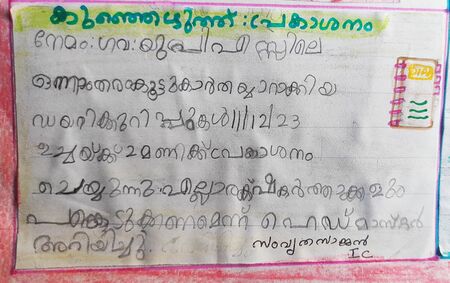 കുഞ്ഞെഴുത്ത് : പ്രകാശനം
നേമം : ഗവ : യു പി എ സ്സിലെ
ഒന്നാംതരക്കൂട്ടുകാർതയ്യാറാക്കിയ
ഡയറിക്കുറിപ്പുകൾ 11/12/23
ഉച്ചയ്ക്ക് 2 മണിക്ക് പ്രകാശനം
ചെയ്യുന്നു. എല്ലാരക്ഷകർത്താക്കളും
പങ്കെടുക്കണമെന്ന് ഹെഡ്മാസ്റ്റർ
അറിയിച്ചു.
സംവൃതസാജൻ
I C